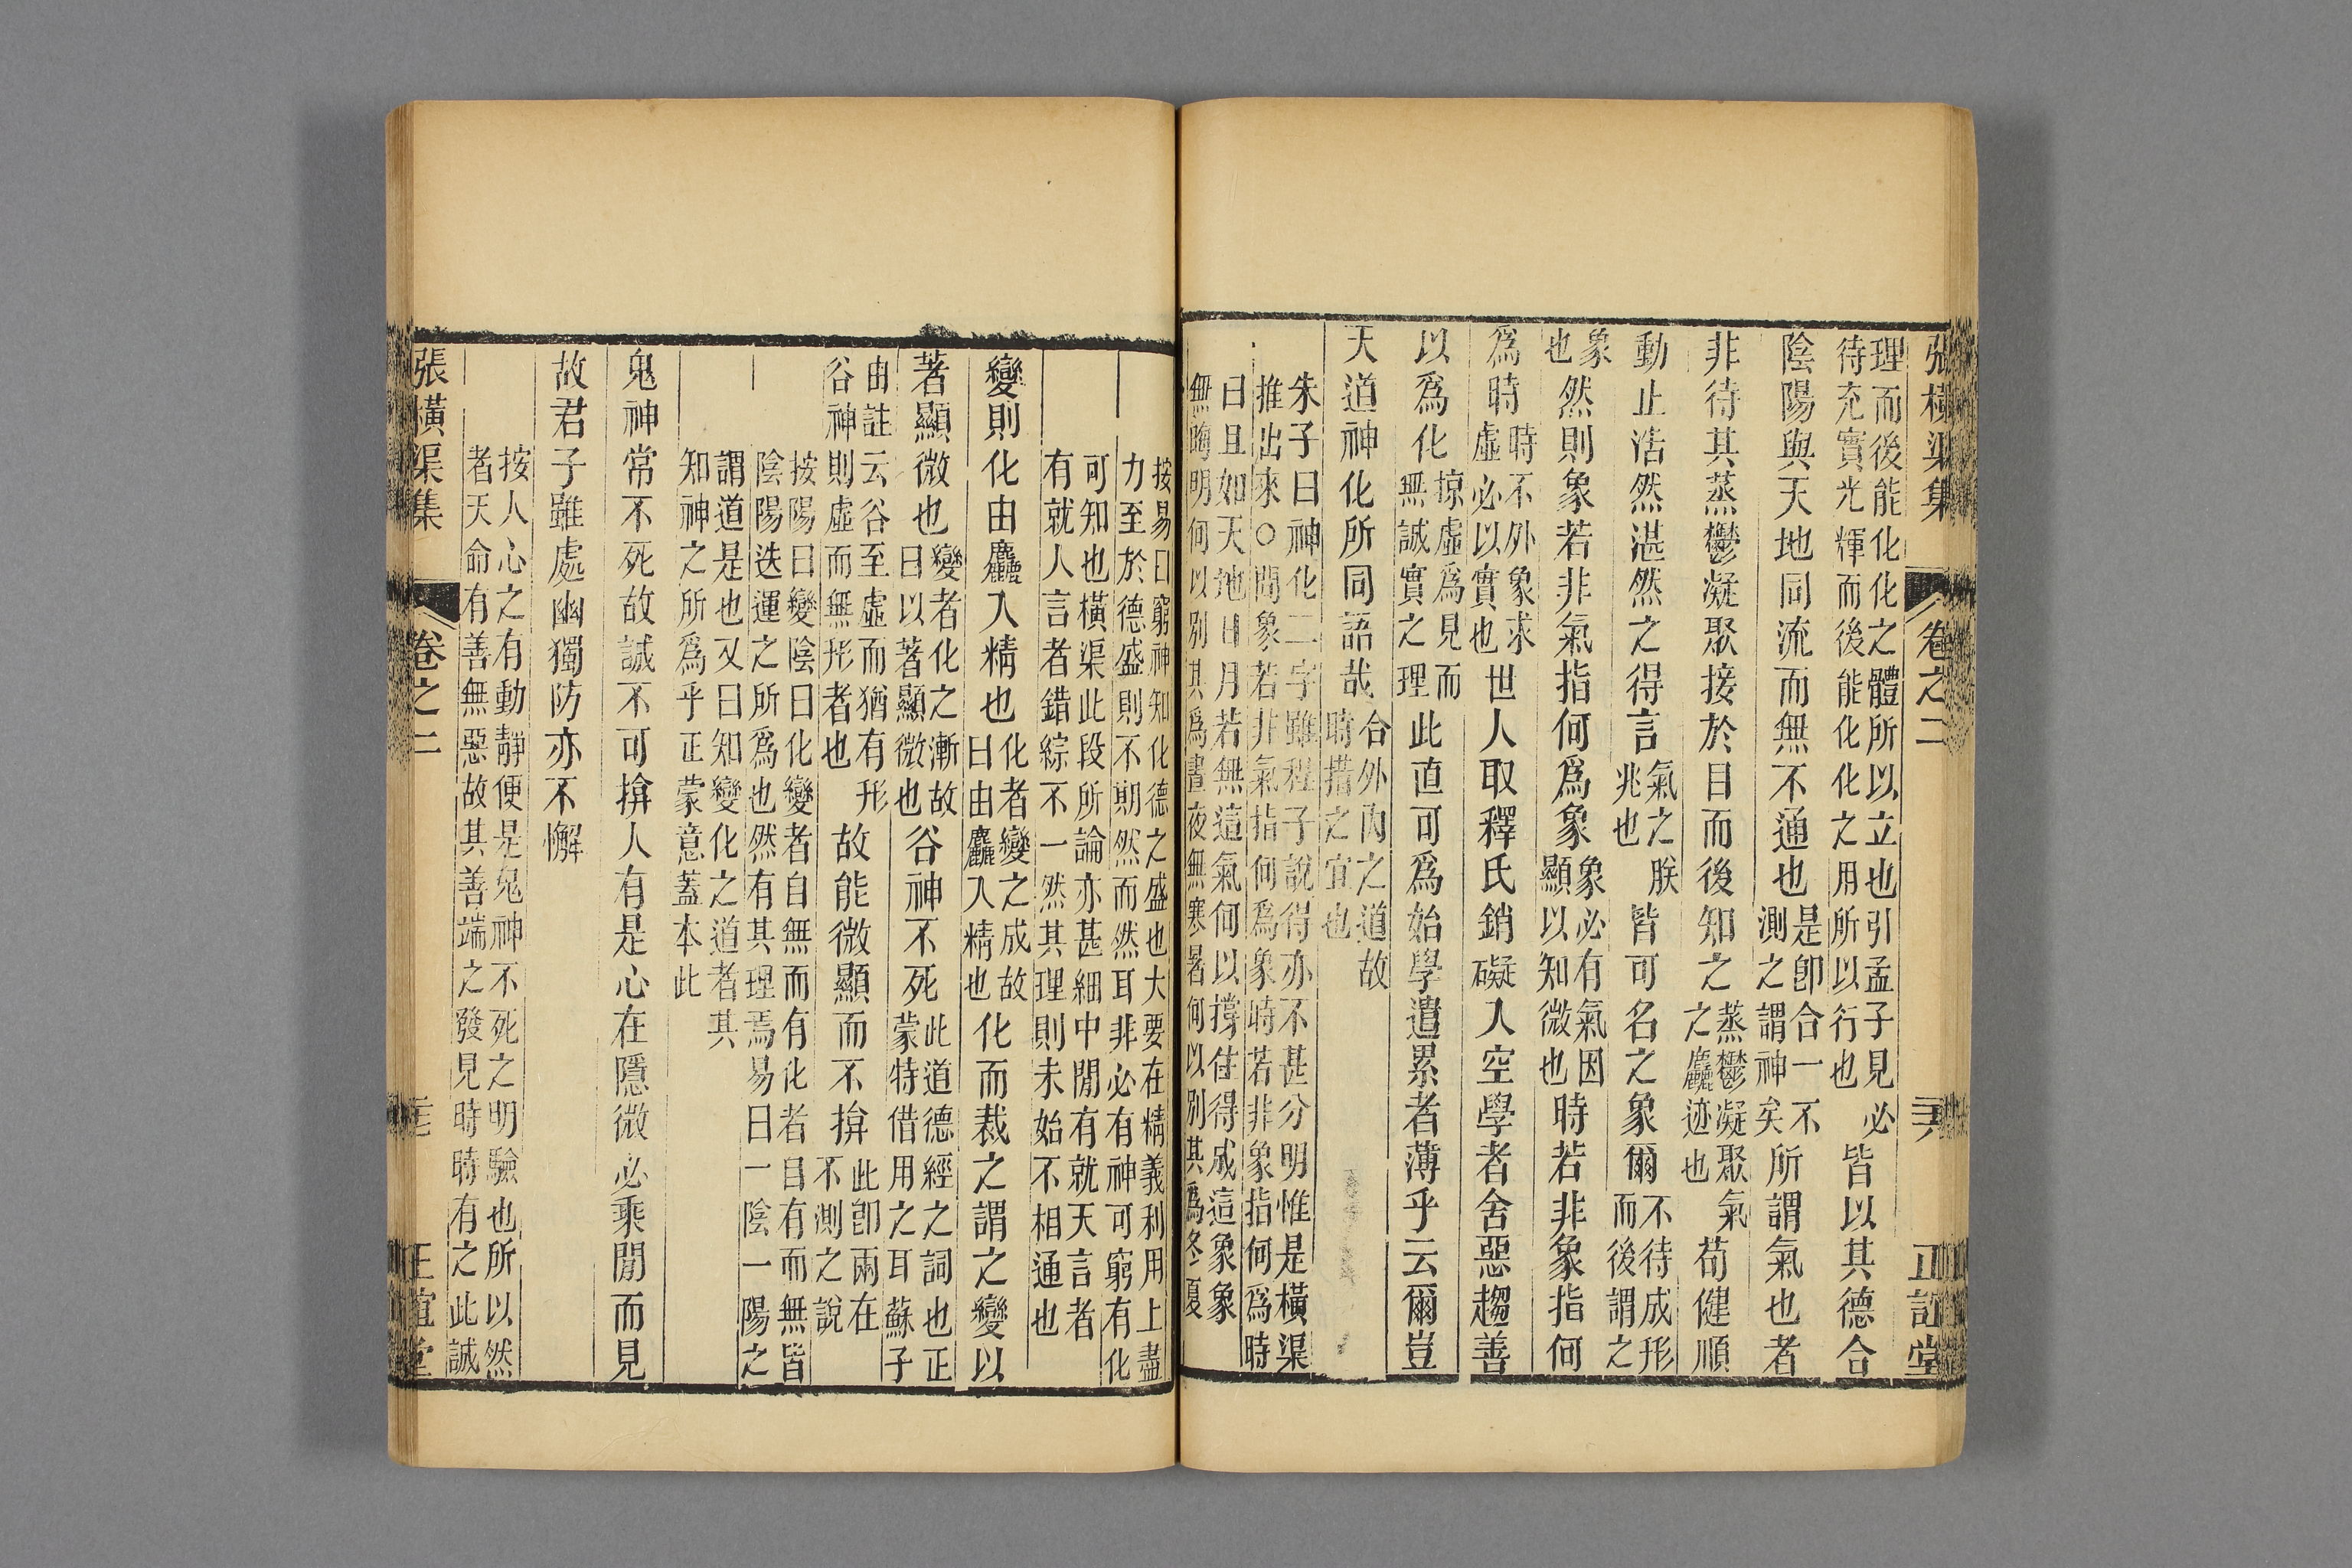 張橫渠集 卷之二 正誼堂
理而後能化化之體所以立也引孟子見必
待充實光輝而後能化化之用所以行也
皆以其德合
陰陽與天地同流而無不通也
是卽合一不
測之謂神矣
所謂氣也者
非待其蒸鬱凝聚接於目而後知之
蒸鬱凝聚氣
之麤迹也
苟健順
動止浩然湛然之得言
氣之朕
兆也
皆可名之象爾
不待成形
而後謂之
象
也
然則象若非氣指何爲象
象必有氣因
顯以知微也
時若非象指何
爲時
時不外象求
虛必以實也
世人取釋氏銷礙入空學者舍惡趨善
以爲化
掠虛爲見而
無誠實之理
此直可爲始學遣累者薄乎云爾豈
天道神化所同語哉
合外內之道故
時措之宜也
朱子曰神化二字雖程子說得亦不甚分明惟是橫渠
推出來○問象若非氣指何爲象時若非象指何爲時
曰且如天地日月若無這氣何以撐住得成這象象
無晦明何以別其爲晝夜無寒暑何以別其爲冬夏
按易曰窮神知化德之盛也大要在精義利用上盡
力至於德盛則不期然而然耳非必有神可窮有化
可知也橫渠此段所論亦甚細中閒有就天言者
有就人言者錯綜不一然其理則未始不相通也
變則化由麤入精也
化者變之成故
曰由麤入精也
化而裁之謂之變以
著顯微也
變者化之漸故
曰以著顯微也
谷神不死
此道德經之詞也正
蒙特借用之耳蘇子
由註云谷至虛而猶有形
谷神則虛而無形者也
故能微顯而不揜
此卽兩在
不測之說
按陽曰變陰曰化變者自無而有化者自有而無皆
陰陽迭運之所爲也然有其理焉易曰一陰一陽之
謂道是也又曰知變化之道者其
知神之所爲乎正蒙意蓋本此
鬼神常不死故誠不可揜人有是心在隱微必乘閒而見
故君子雖處幽獨防亦不懈
按人心之有動靜便是鬼神不死之明驗也所以然
者天命有善無惡故其善端之發見時時有之此誠
張橫渠集 卷之二 正誼堂